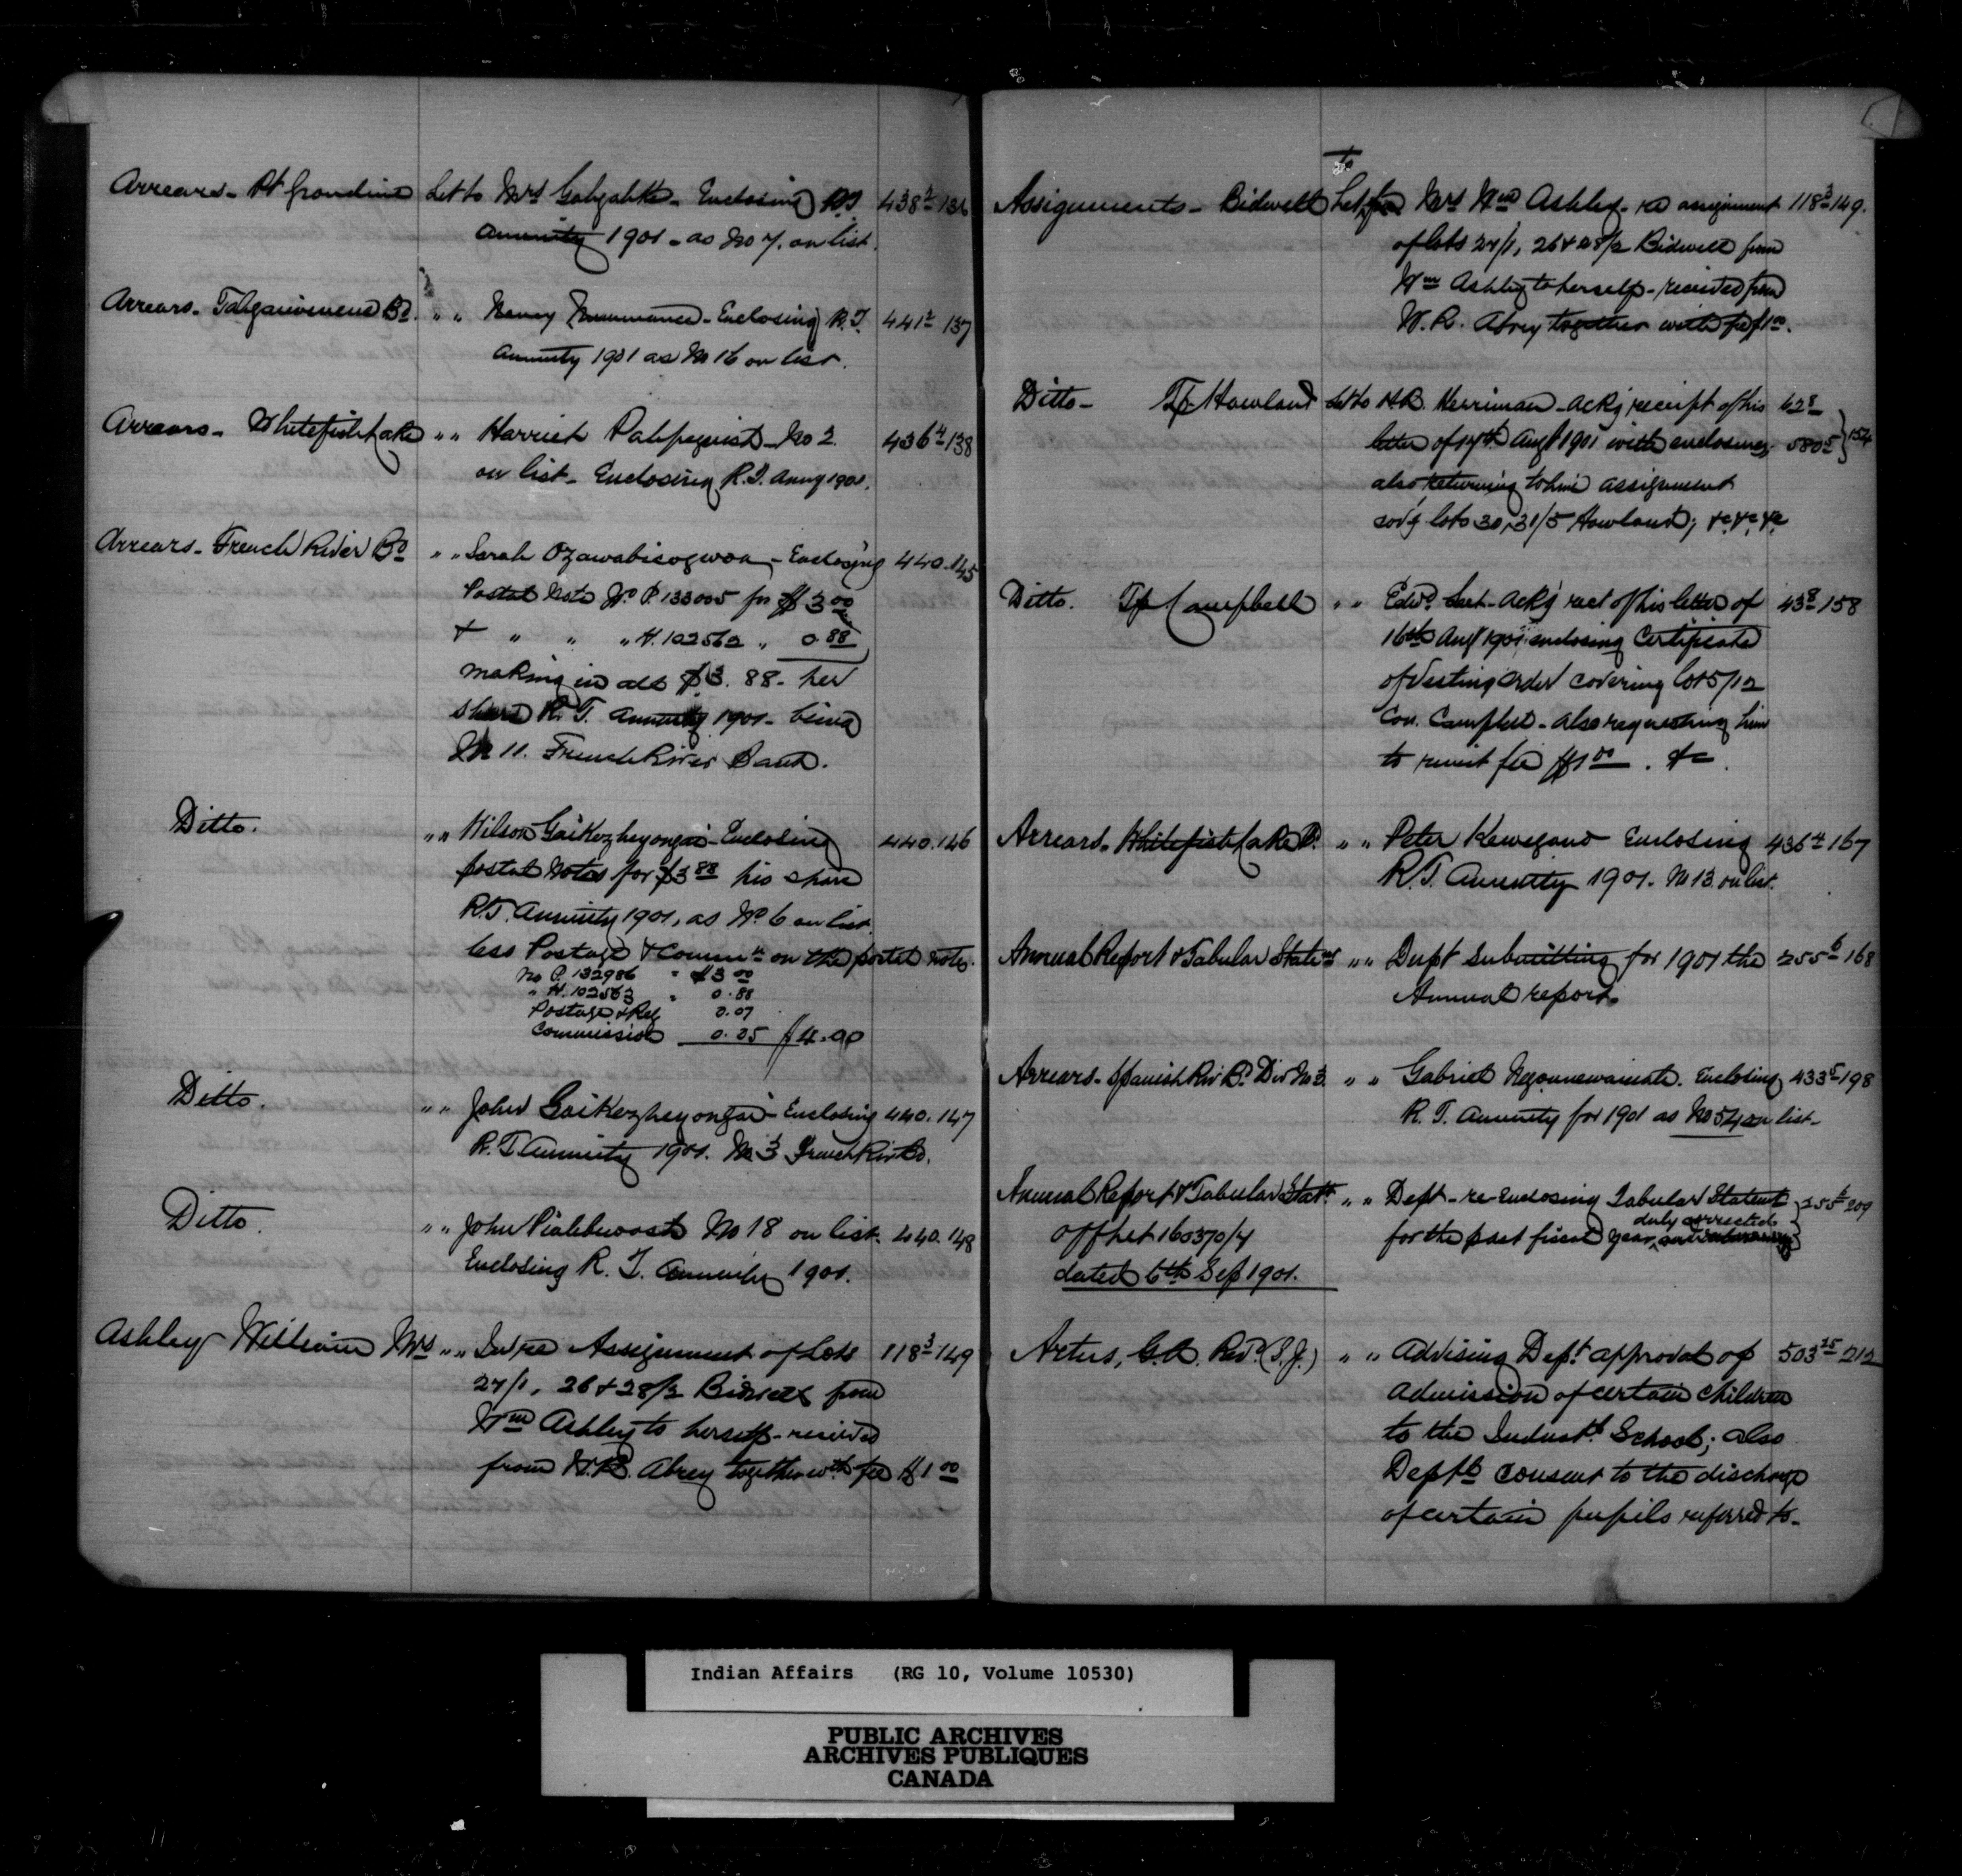 Arrears - Pt Grondine Let to Mrs Gahgahke - Enclosing R.T 438² 136
annuity 1901 - as No 7. on list.
Arrears - Tahgaiwenene Bd. " " Nancy - Enclosing R.T. 441² 137
annuity 1901 as No 16 on list.
Arrears - Whitefish Lake " " Harriet No 2. 436⁴ 138
on list - Enclosing R.T. anny 1901.
Arrears - French River Bd " " Sarah Ozawabicogwon - Enclosing 440.145
Postal Note No P. 133005 for $3.00
+ " " " H. 102562 " 0.88
making in all $3.88 - her
share R.T. annuity 1901 - being
No 11. French River Band.
Ditto. " " Wilson Gaikezheyongai - Enclosing 440.146
postal Notes for $3.88 his share
R.T. annuity 1901, as No. 6 on list
less Postage & Commn on the postal notes.
No P. 132986 " $3.00
" H. 102563 " 0.88
Postage & Reg 0.07
Commission 0.05 $4.00
Ditto. " " John Gaikezheyongai - Enclosing 440.147
R.T annuity 1901. No 3 French Riv Bd.
Ditto. " " John No 18 on list. 440.148
Enclosing R.T. annuity 1901.
Ashley William Mrs " " Assignment of Lots 118³ 149
27/1, 26 & 28/2 Bidwell from
Wm Ashley to herself - received
from W.R. Abrey together with fee $1.00
to
Assignments - Bidwell Let Mrs Wm Ashley - re assignment 118³ 149.
of lots 27/1, 26 & 28/2 Bidwell from
Wm Ashley to herself - received from
W.R. Abrey together with fee $1.00.
Ditto - Tp Howland Let to H.B. Herriman - ack'g receipt of his 62⁸
letter of 17th Augt 1901 with enclosures 580⁵ } 154
also returning to him assignment
cov'g lots 30, 31/5 Howland; &c, &c, &c
Ditto. Tp Campbell " " Edwd. - ack'g rect of his letter of 43⁸ 158
16th Augt 1901 enclosing Certificate
of Vesting Order covering lot 5/12
Con. Campbell - also requesting him
to remit fee $1.00. &c.
Arrears - Whitefish Lake B. " " Peter Kewegand Enclosing 436⁴ 167
R.T. Annuity 1901. No 13. on list.
Annual Report & Tabular Statemt " " Dept submitting for 1901 the 255⁶ 168
Annual report.
Arrears - Spanish Riv Bd. Div No 3. " " Gabriel Enclosing 433⁵ 198
R.T. annuity for 1901 as No 54 on list.
Annual Report & Tabular Statt. " " Dept - re-enclosing Tabular Statemt } 255⁶ 209
off Let 160370/4 for the past fiscal year duly corrected
dated 6th Sep 1901.
Artus, G.A. Revd. (S.J.) " " Advising Dept. approval of 503¹⁵ 212
admission of certain children
to the Indust'l School; also
Depts consent to the discharge
of certain pupils referred to -
Indian Affairs (RG 10, Volume 10530)
PUBLIC ARCHIVES
ARCHIVES PUBLIQUES
CANADA